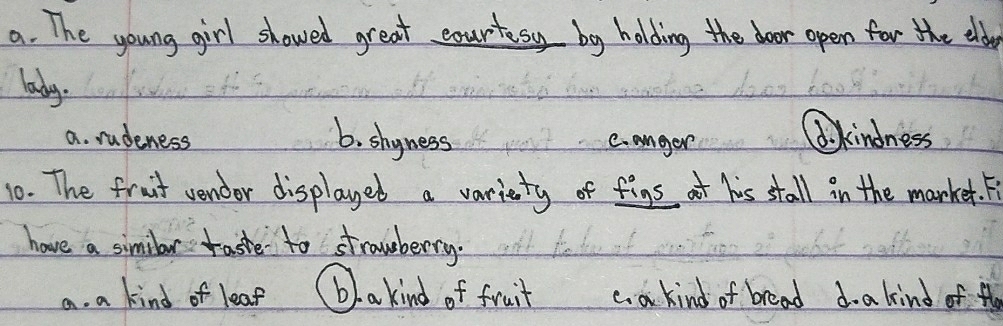 a. The young girl showed great courtesy by holding the door open for the elder
lady.
a. rudeness b. shyness c. anger d. kindness
10. The fruit vendor displayed a variety of figs at his stall in the market. Fi
have a similar taste to strawberry.
a. a kind of leaf b. a kind of fruit c. a kind of bread d. a kind of